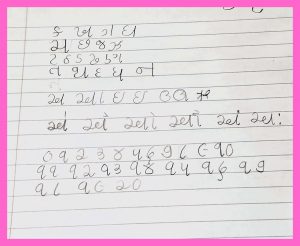 ક ખ ગ ઘ
ચ છ જ ઝ
ટ ઠ ડ ઢ ણ
ત થ દ ધ ન
અ આ ઇ ઈ ઉ ઊ ઋ
એ ઐ ઓ ઔ અં અઃ
૦ ૧ ૨ ૩ ૪ ૫ ૬ ૭ ૮ ૯ ૧૦
૧૧ ૧૨ ૧૩ ૧૪ ૧૫ ૧૬ ૧૭
૧૮ ૧૯ ૨૦